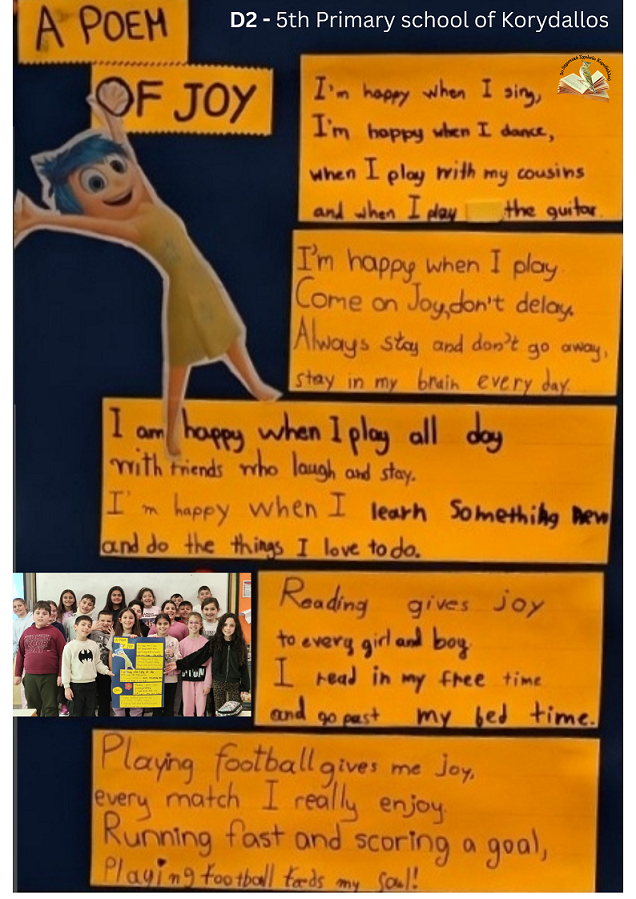 D2 - 5th Primary school of Korydallos
A POEM
OF JOY
I'm happy when I sing,
I'm happy when I dance,
when I play with my cousins
and when I play the guitar.
I'm happy when I play
Come on Joy, don't delay.
Always stay and don't go away,
stay in my brain every day.
I am happy when I play all day
with friends who laugh and stay.
I'm happy when I learn something new
and do the things I love to do.
Reading gives joy
to every girl and boy
I read in my free time
and go past my bed time.
Playing football gives me joy,
every match I really enjoy.
Running fast and scoring a goal,
Playing football feeds my soul!